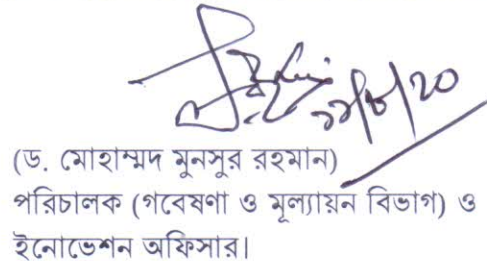 ২২/৮/২০
(ড. মোহাম্মদ মুনসুর রহমান)
পরিচালক (গবেষণা ও মূল্যায়ন বিভাগ) ও
ইনোভেশন অফিসার।